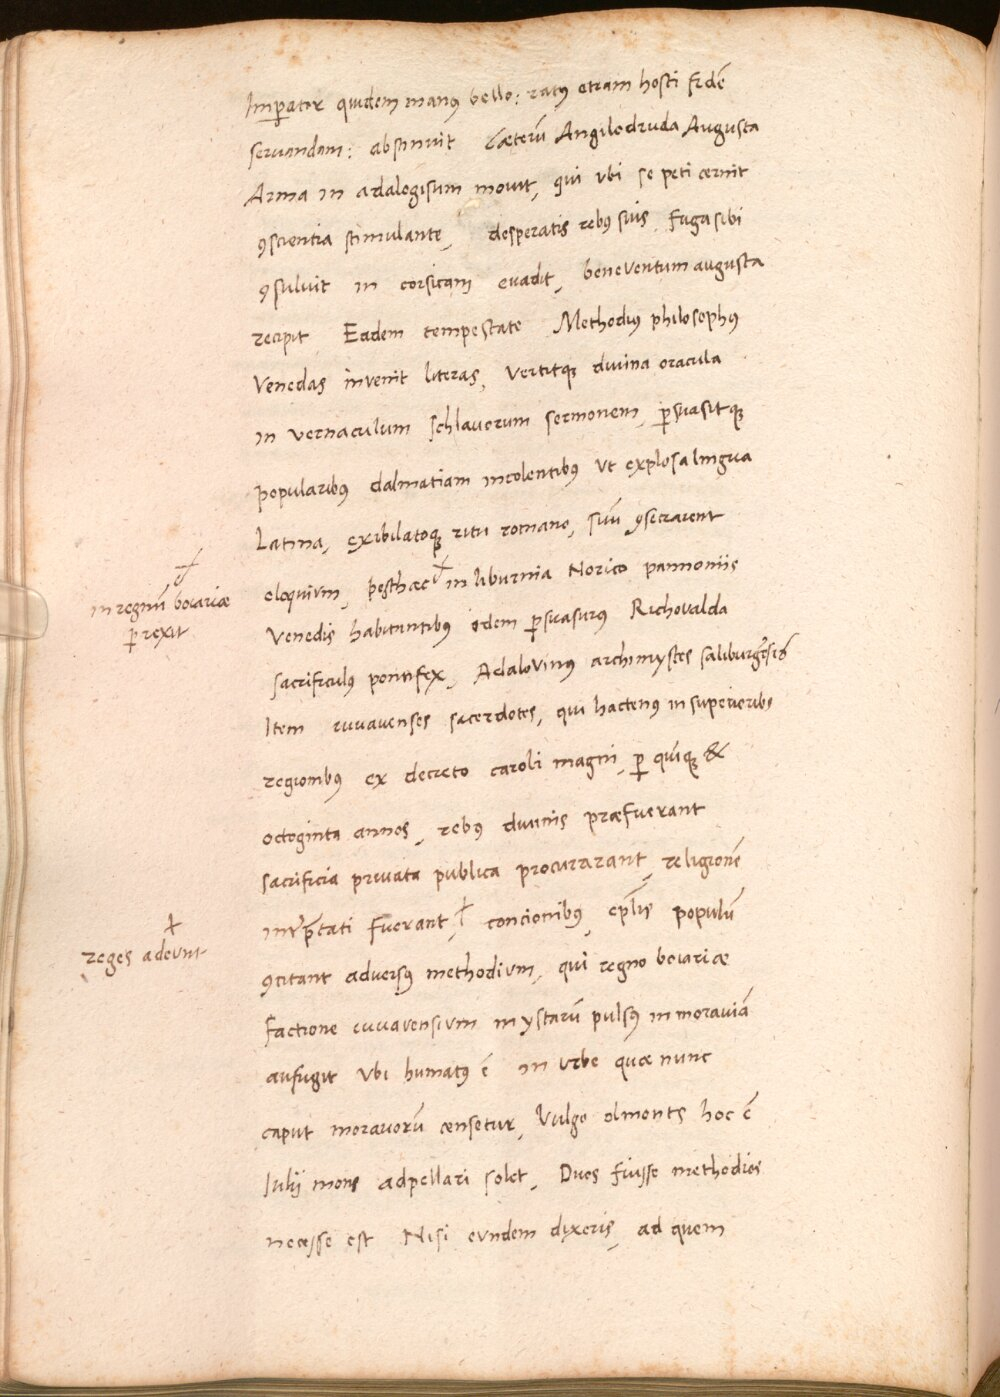 Imꝑator quidem manꝰ bello: ratꝰ etiam hosti fidē
seruandam: abstinuit Cæterū Angilodruda Augusta
Arma in adalogisum mouit, qui vbi se peti cernit
ꝯscientia stimulante, desperatis rebꝰ suis, fuga sibi
ꝯsuluit in corsicam euadit, beneventum augusta
recipit Eadem tempestate Methodiꝰ philosophꝰ
Venedas invenit literas, vertitqꝫ diuina oracula
in vernaculum schlauorum sermonem, ꝑsuasitqꝫ
popularibꝰ dalmatiam incolentibꝰ vt explosa lingua
Latina, exibilatoqꝫ ritu romano, suū ꝯsecrarent
eloquium, posthæc ☩ in liburnia Norico pannoniis
in regnū boiariæ
ꝑrexit
Venedis habitantibꝰ idem ꝑsuasurꝰ Richovalda
sacrificulꝰ pontifex, Adalovinꝰ archimystes saliburgēsis
Item iuuauenses sacerdotes, qui hactenꝰ in superioribꝰ
regionibꝰ ex decreto caroli magni, ꝑ quīqꝫ &
octoginta annos, rebꝰ diuinis præfuerant
sacrificia priuata publica procurarant, religionē
intꝑtati fuerant, ☩ concionibꝰ, epl̄is populū
reges adeunt
ꝯcitant adversꝰ methodium, qui regno boiariæ
factione iuuavensium mystarū pulsꝰ in morauiā
aufugit vbi humatꝰ ē in vrbe quæ nunc
caput morauorū censetur, Vulgo olmonts hoc ē
Iulij mons adpellari solet, Duos fuisse methodios
necesse est Nisi eundem dixeris, ad quem